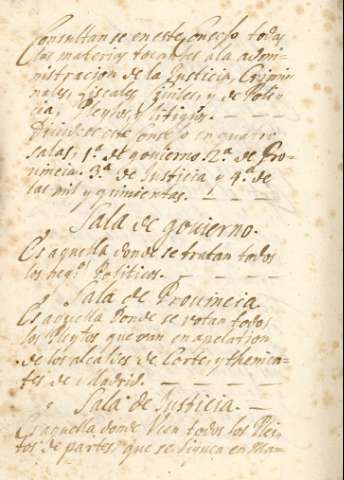 Consultanse en este Consejo todas
las materias tocantes a la admi-
nistracion de la Justicia, Crimi-
nales, fiscales, Civiles, y de Poli-
cia, Pleytos, y litigios. - - -
Dividese este consejo en quatro
salas, 1ª de govierno. 2ª de Pro-
vincia. 3ª de Justicia y 4ª de
las mil y quinientas. - -
Sala de govierno.
Es aquella donde se tratan todos
los neg.ˢ Politicos. - - - -
Sala de Provincia
Es aquella donde se votan todos
los Pleytos que van en apelacion
de los alcaldes de Corte, y thenien-
tes de Madrid. - - - - -
Sala de Justicia. -
Es aquella donde veen todos los Plei-
tos de partes, que se siguen en